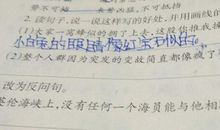 2. 读句子,说一说这样写的好处,并用画线的
(1)大家一窝蜂似的拥了上去,这股
小白兔的眼睛像红宝石似的。
(2)整个人群因为突发的变故简直都像疯了
改为反问句。
伦海峡上,没有任何一个海员能与他相